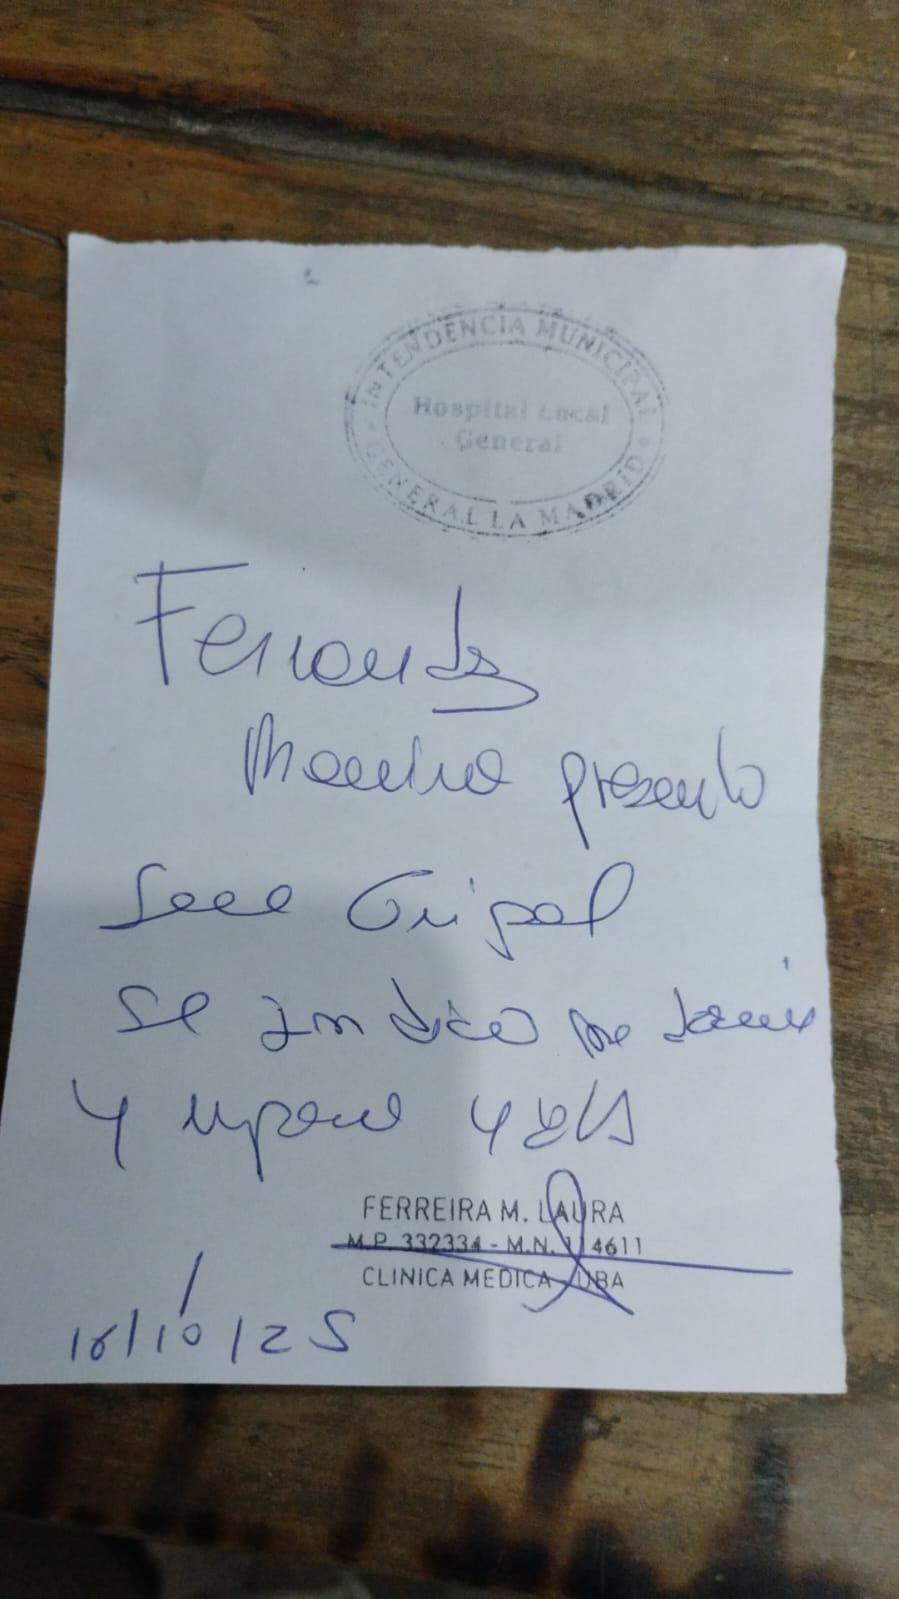 INTENDENCIA MUNICIPAL
Hospital Local
General
GENERAL LA MADRID
Fernandez
presento
Gripal
se Indica
y reposo 48hs
FERREIRA M. LAURA
M.P. 332334 - M.N. 114611
CLINICA MEDICA - UBA
16/10/25